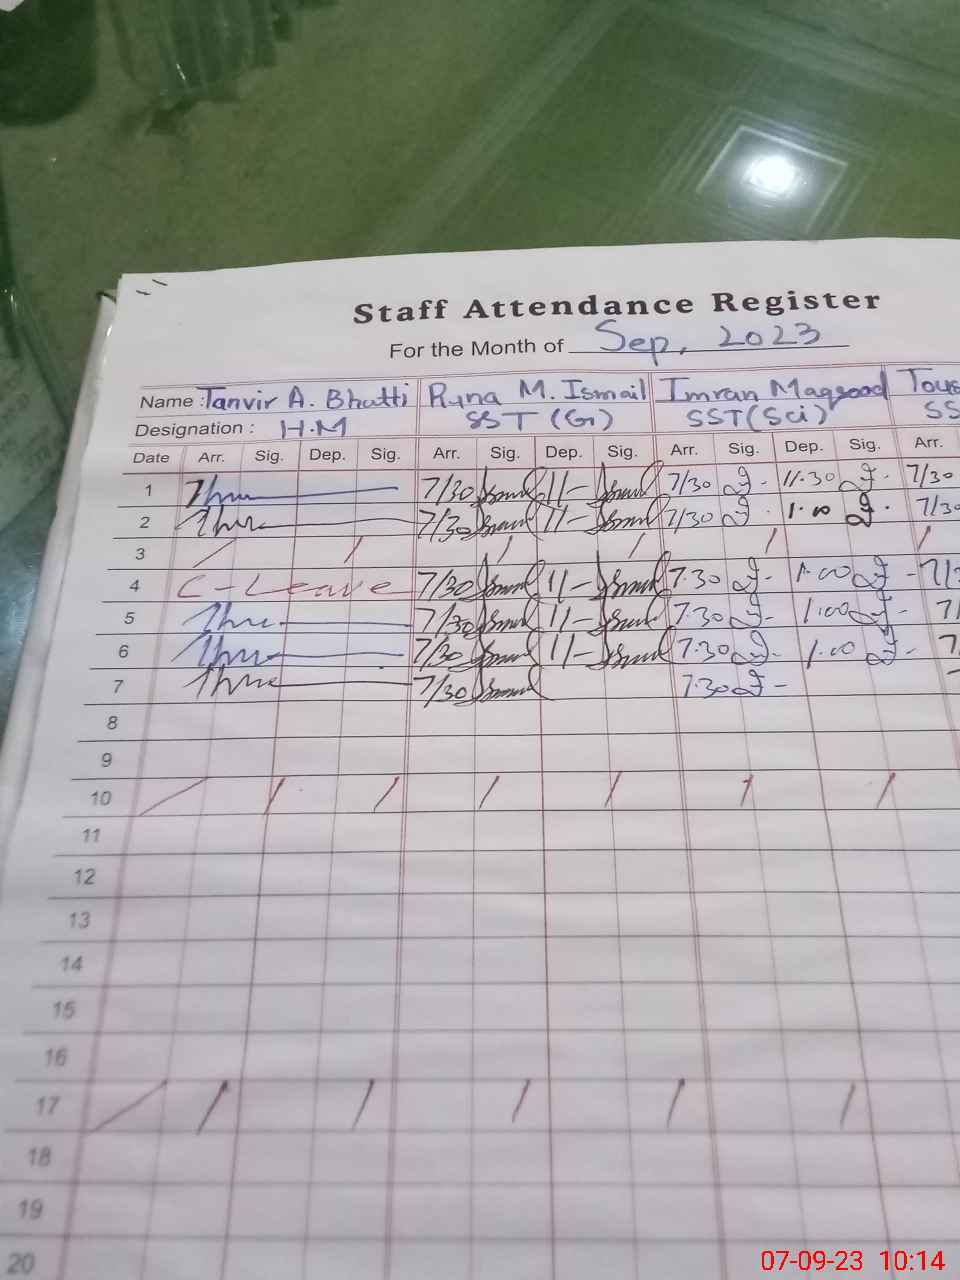 Staff Attendance Register
For the Month of Sep, 2023
Name : Tanvir A. Bhatti Rana M. Ismail Imran Maqsood
Designation : H.M SST (G) SST (Sci) SS
Date Arr. Sig. Dep. Sig. Arr. Sig. Dep. Sig. Arr. Sig. Dep. Sig. Arr.
1 7/30 11- 7/30 11.30 7/30
2 7/30 11- 7/30 1.00 7/30
3
4 C-Leave 7/30 11- 7.30 1.00
5 7/30 11- 7.30 1.00
6 7/30 11- 7.30 1.00
7 7/30 7.30
8
9
10
11
12
13
14
15
16
17
18
19
20
07-09-23 10:14